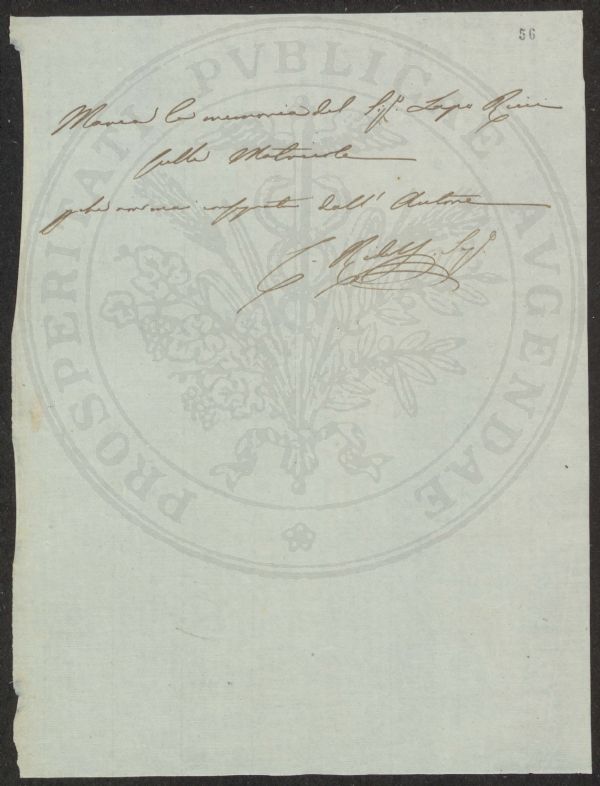 56
PROSPERITATI PVBLICAE AVGENDAE
Manca la memoria del Sig.r Lapo Ricci
sulle
dall' Autore
C. Ridolfi Seg.